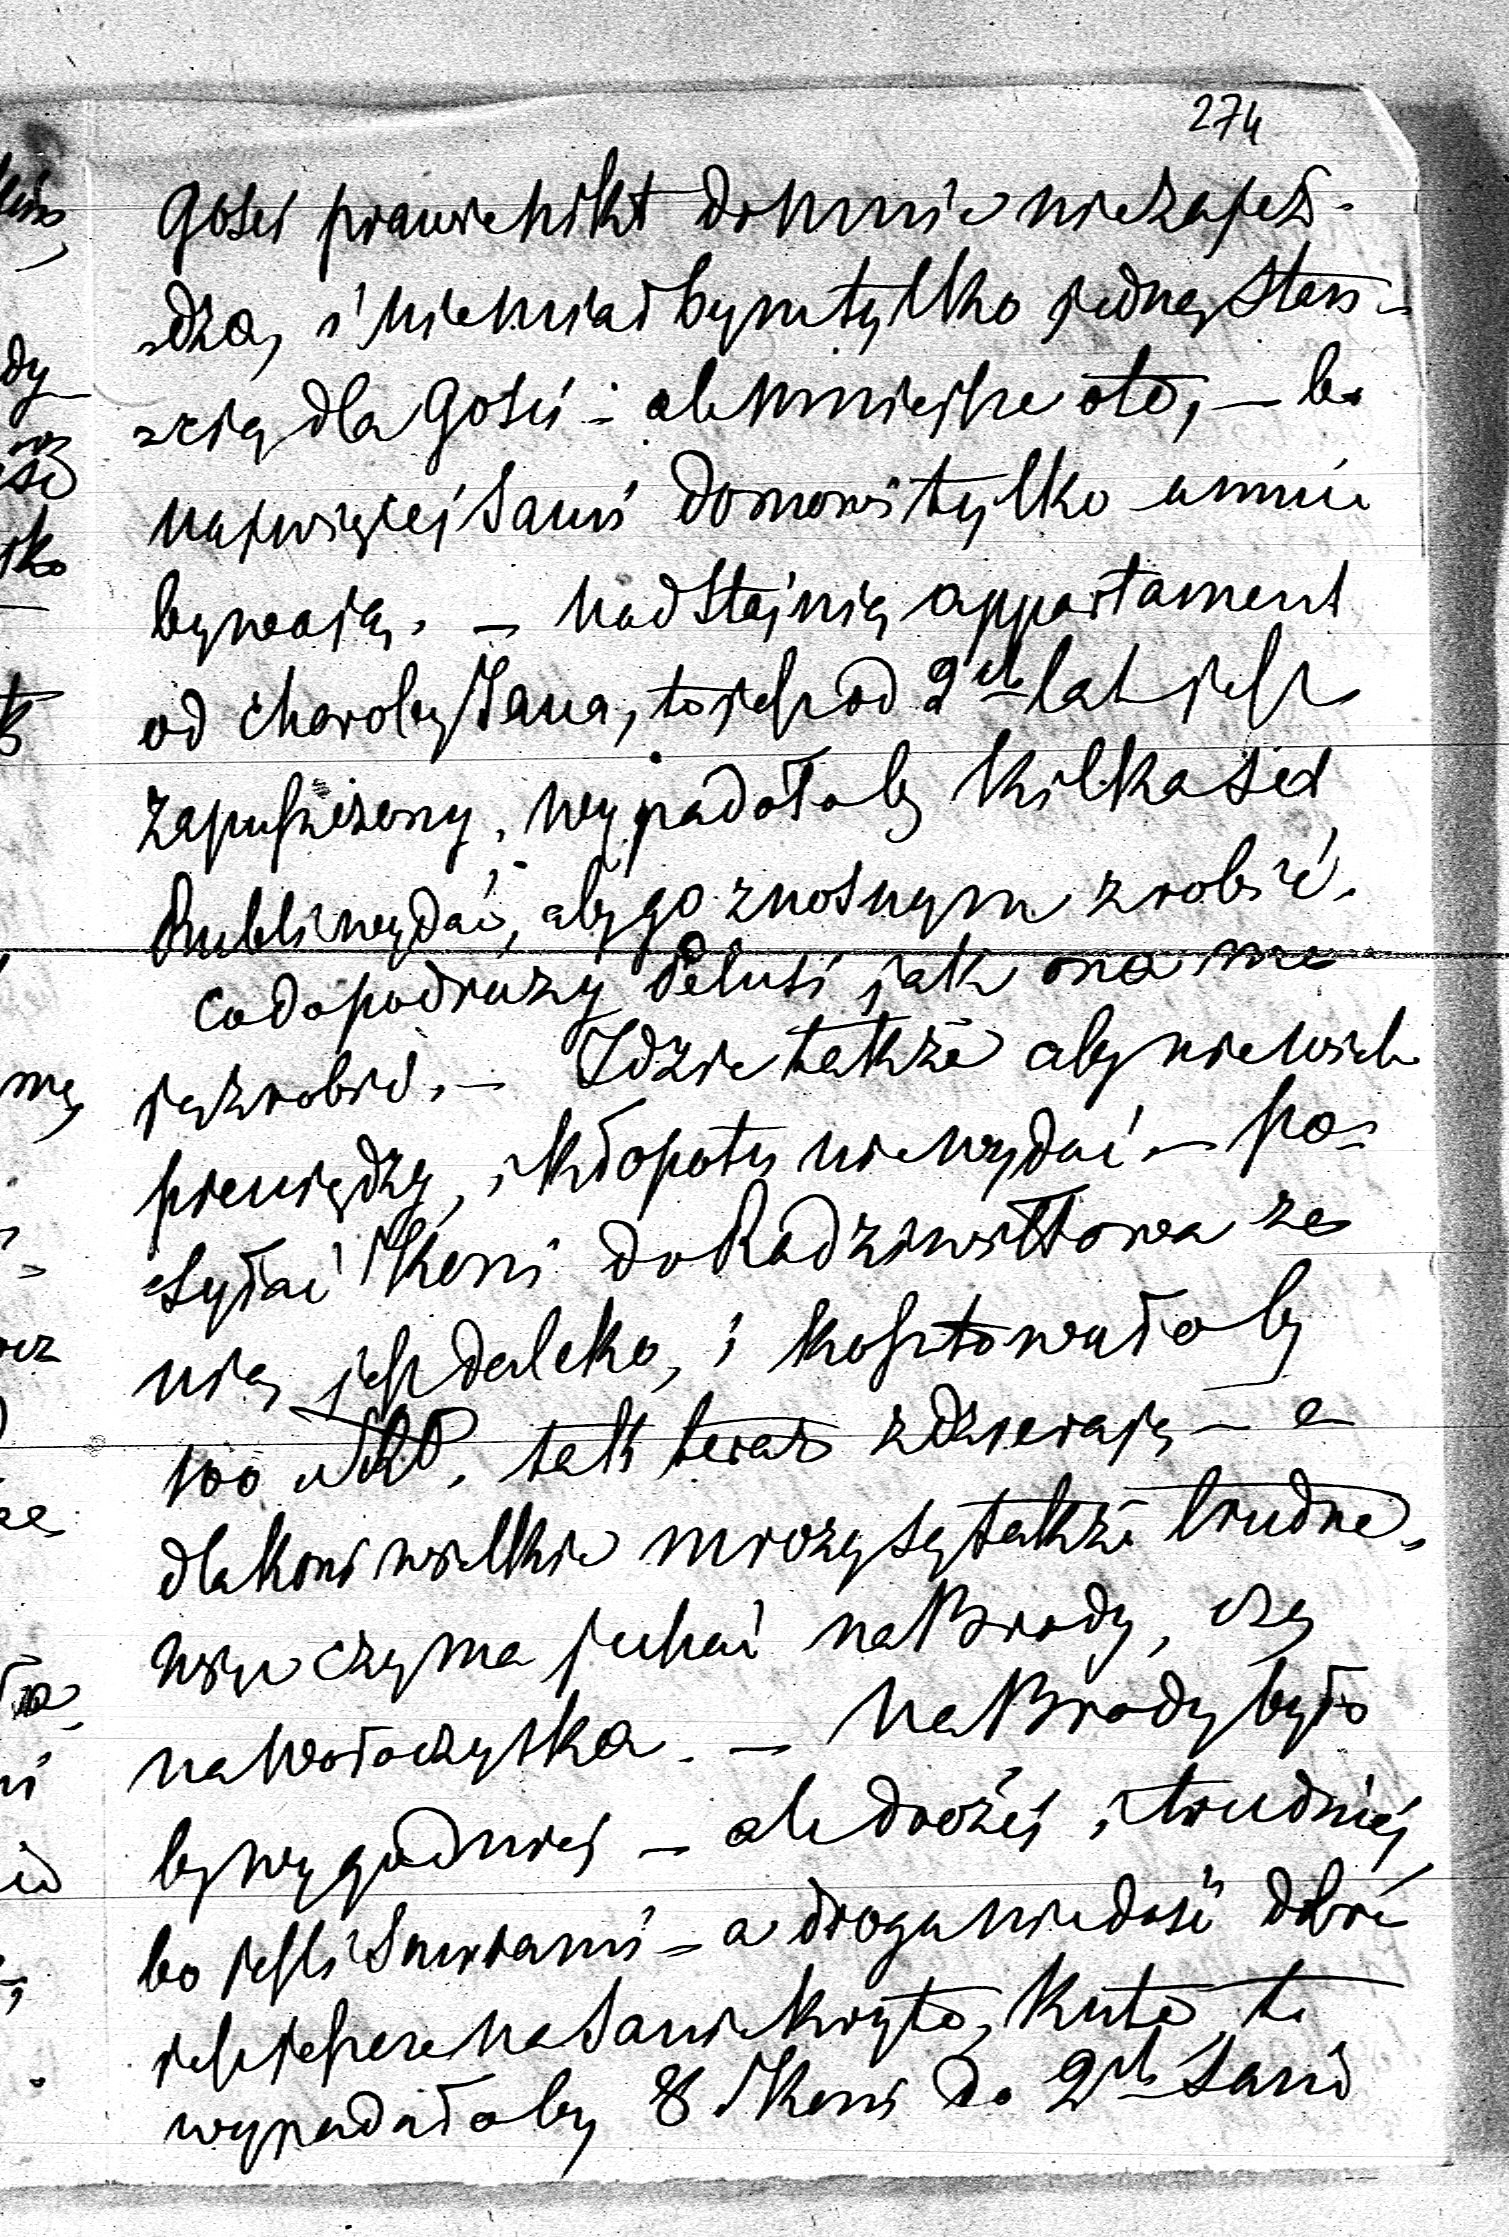 274
Gości prawie nikt do mnie nie zajeż-
-dża, i nie miał bym tylko jedną Stan-
-cią dla Gości - ale mniejsze oto, - bo
najwięcej Sami domowi tylko u mnie
bywają. - Nad Stajnią appartament
od choroby Jana, to jest od 2ch lat jest
zapuszczony, wypadałoby kilkaset
Rubli wydać, aby go znosnym zrobić.
Co do podruży Felusi jak ona ma
ją zrobić. - Idzie także aby nie wiele
pieniędzy, i kłopotu nie wydać - po-
-syłać Koni do Radziwiłłowa ze
nią jest daleko, i kosztowałoby
100 tak teraz zdzierają - a
dla koni wielkie mrozy są także trudne,
więc czy ma jechać na Brody, czy
na Wołoczyska. - Na Brody było
by wygodniej - ale drożej i trudniej
bo jeśli Saniami - a droga nie dość dobra
jest jeszcze na Sanie kryte, Kute, to
wypadałoby 8 Koni do 2ch Sani